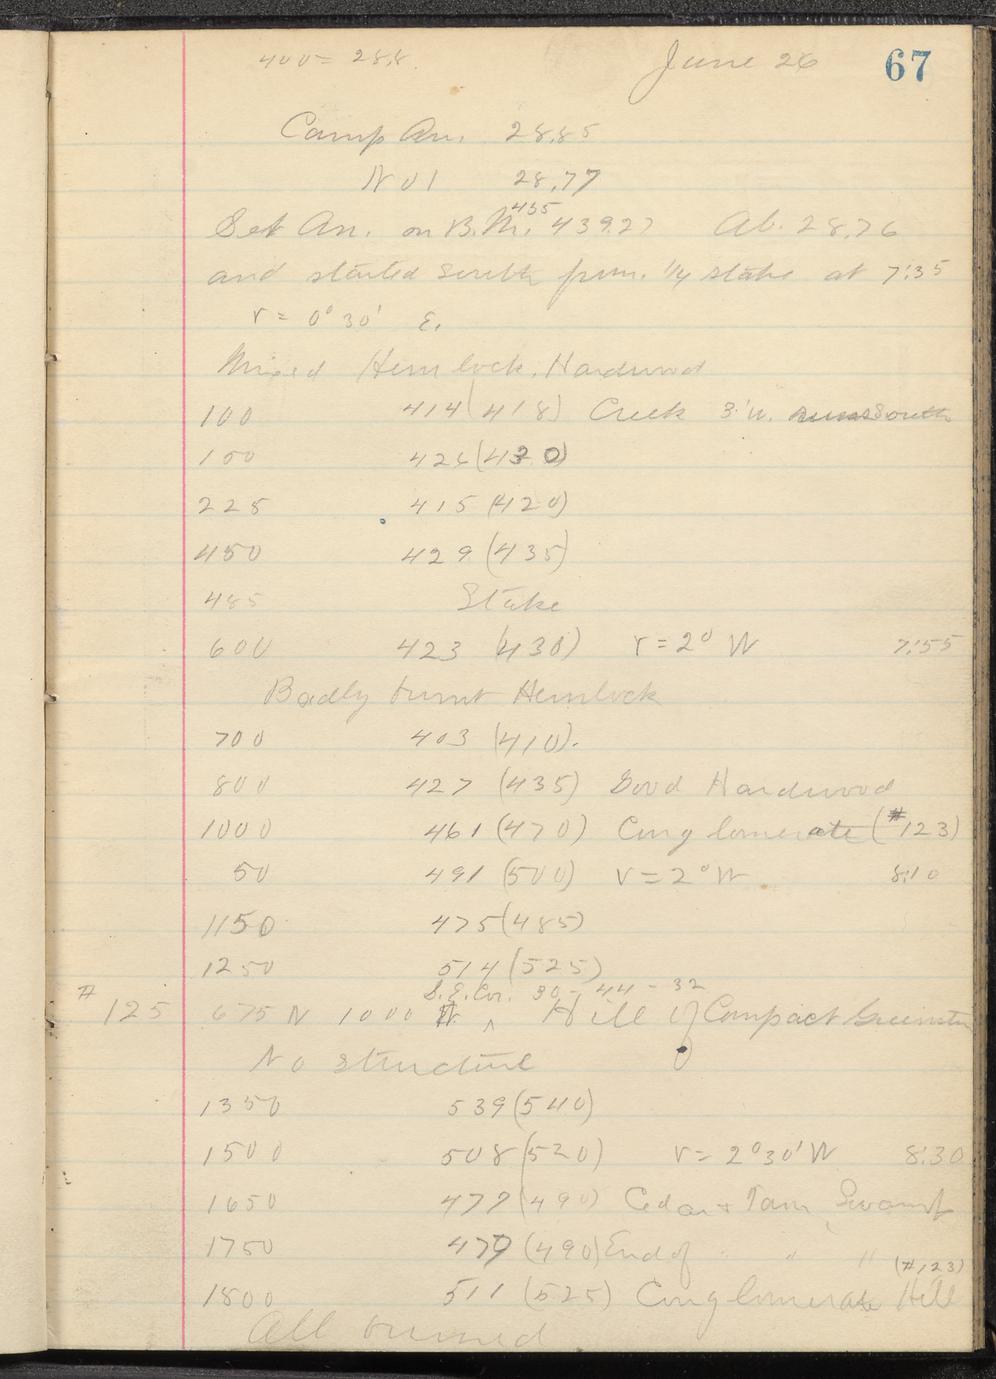 400 = 28.8. June 26 67
Camp An. 28.85
No 1 28.77
455
Set An. on B.M. 439.27 Ab. 28.76
and started South from 1/4 stake at 7:35
v = 0° 30' E.
Mixed Hemlock, Hardwood
100 414 (418) Creek 3' w. runs South
100 426 (430)
225 415 (420)
450 429 (435)
485 Stake
600 423 (430) v = 2° W 7:55
Badly burnt Hemlock
700 403 (410).
800 427 (435) Good Hardwood
1000 461 (470) Conglomerate (#123)
50 491 (500) v = 2° W 8:10
1150 475 (485)
1250 514 (525)
S.E. Cor. 30 - 44 - 32
# 125 675 N 1000 W ^ Hill of Compact Greenstn
No structure
1350 539 (540)
1500 508 (520) v = 2° 30' W 8:30
1650 477 (490) Cedar + Tam. Swamp
1750 479 (490) End of " "
(#123)
1800 511 (525) Conglomerate Hill
All burned